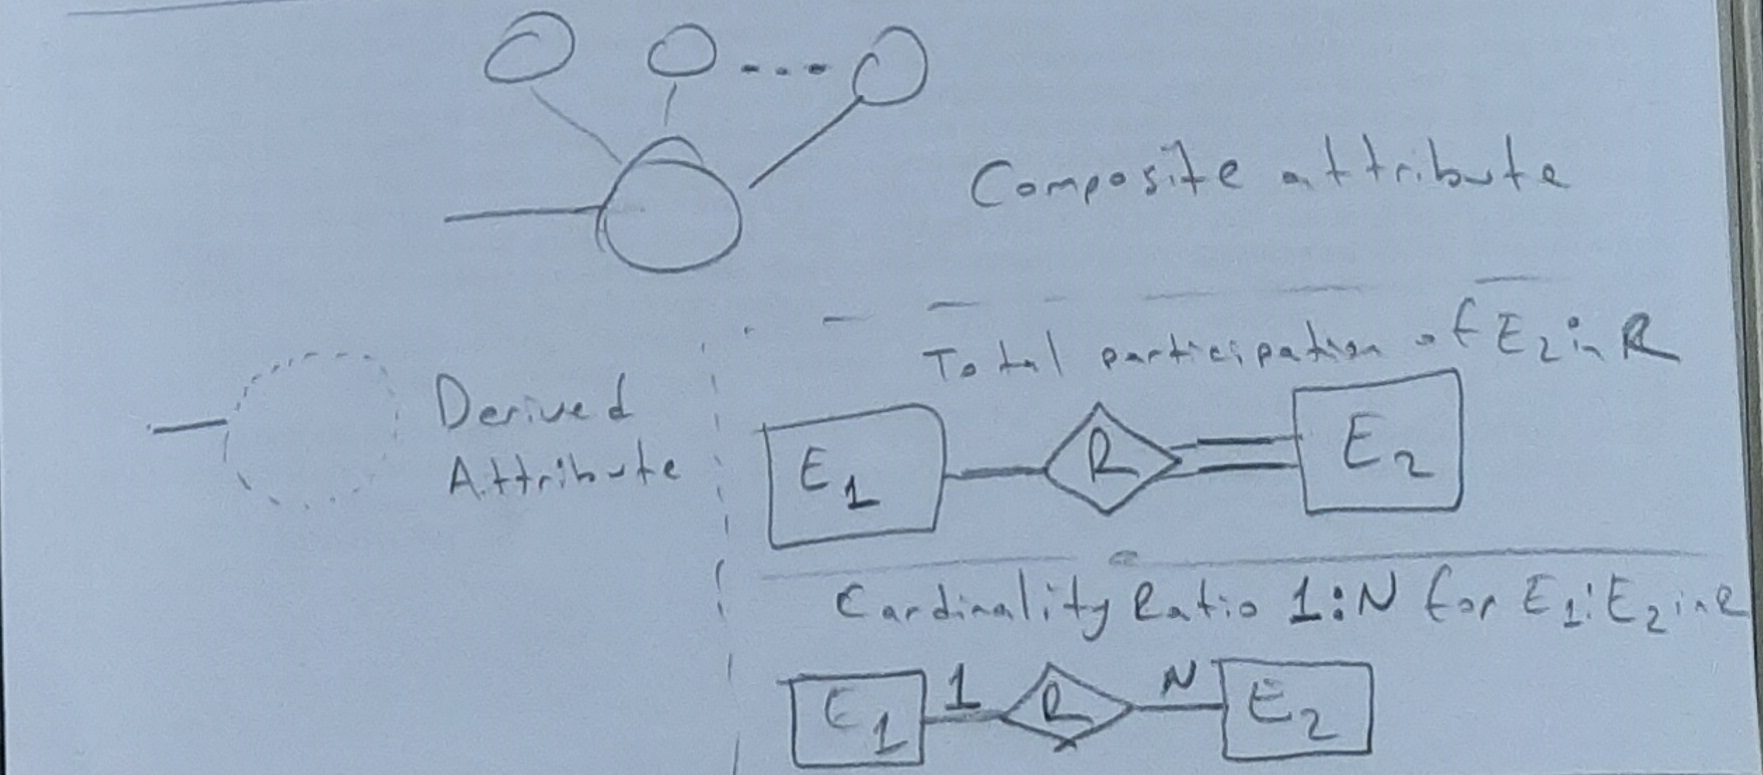 Composite attribute
Derived
Attribute
Total participation of E₂ in R
E₁ R E₂
Cardinality Ratio 1:N for E₁:E₂ in R
E₁ 1 R N E₂